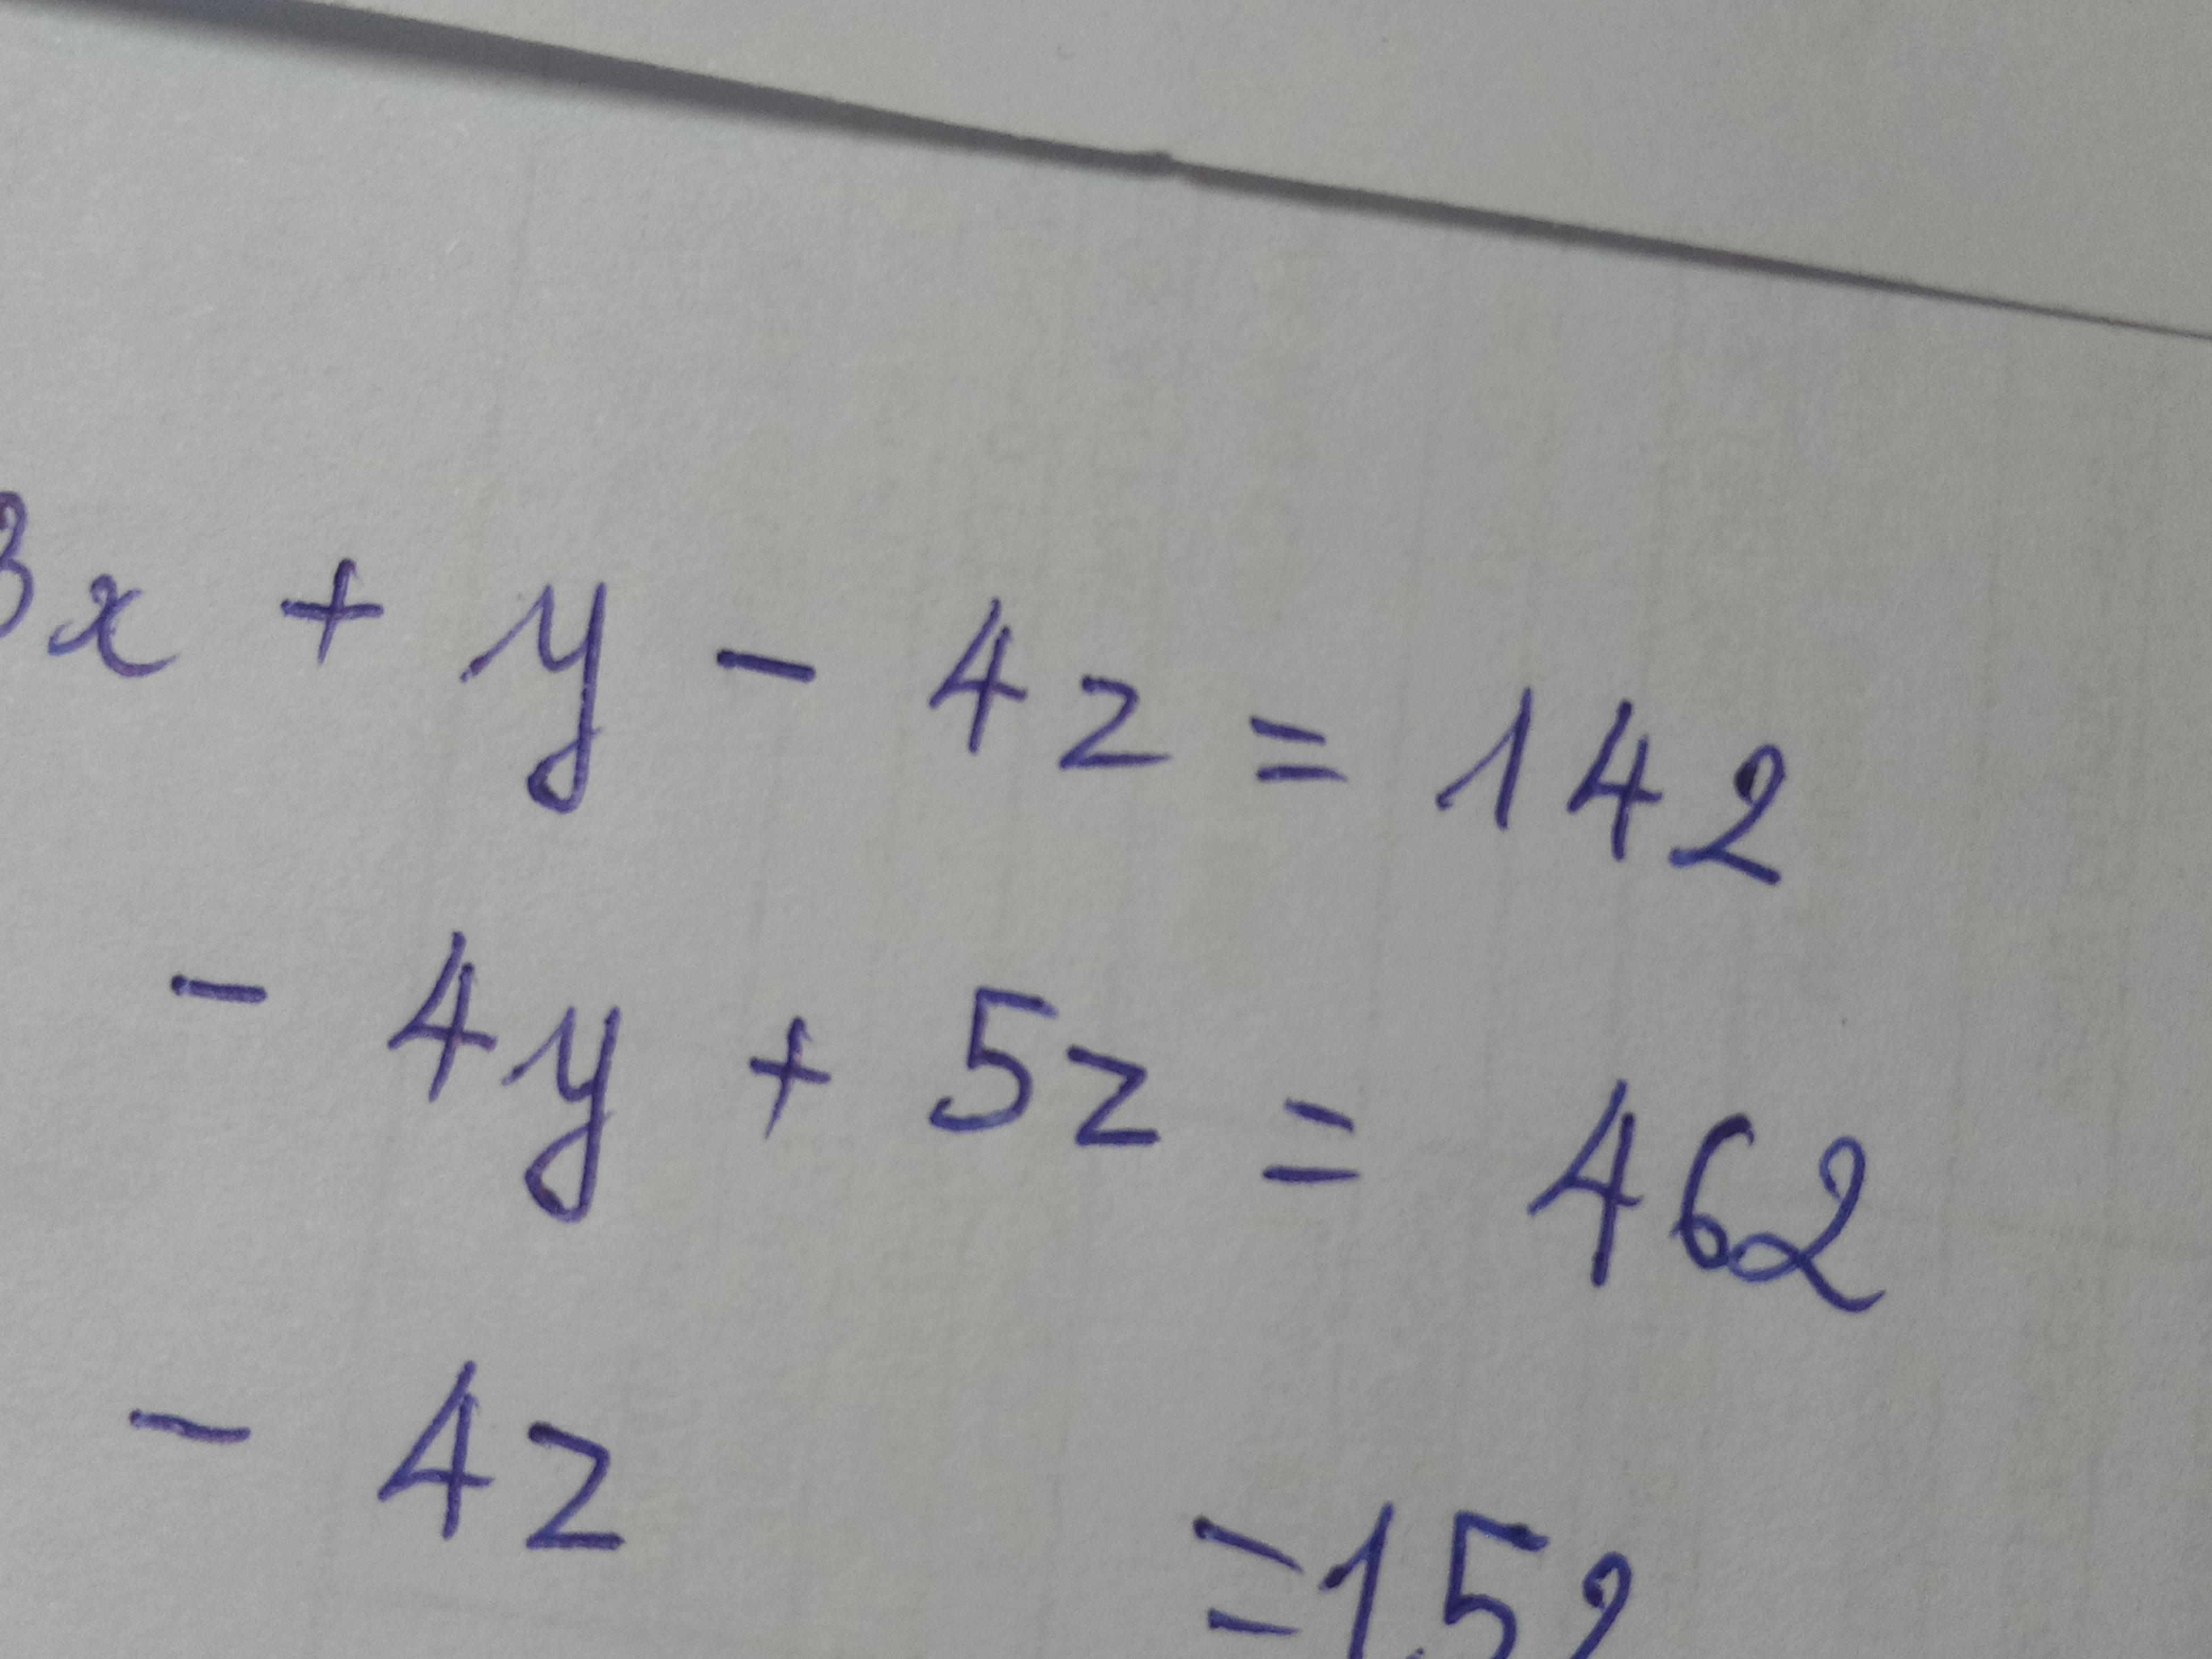 3x + y - 4z = 142
- 4y + 5z = 462
- 4z = 152